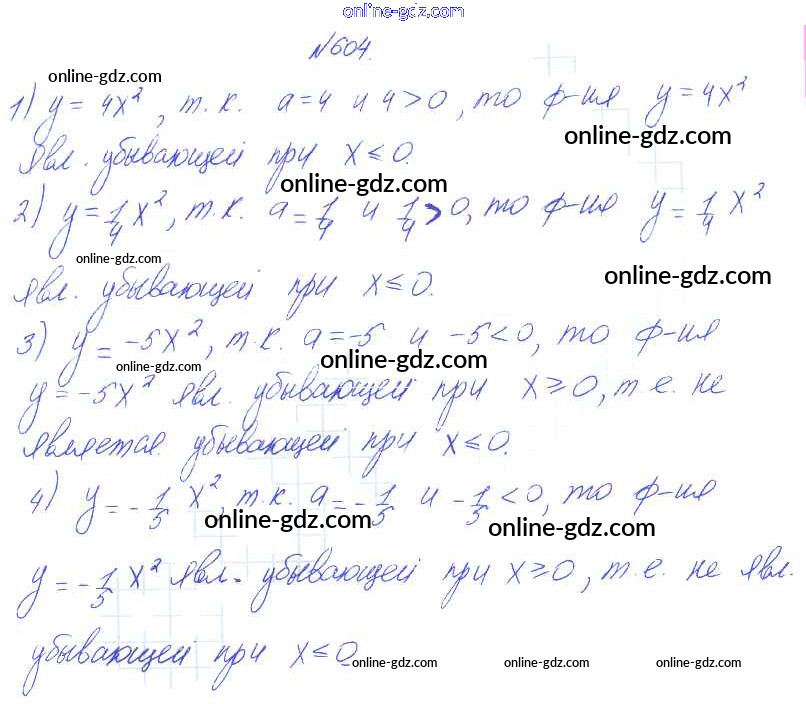 online-gdz.com
№604.
online-gdz.com
1) y = 4x², т.к. a=4 и 4>0, то ф-ия y=4x²
online-gdz.com
явл. убывающей при x≤0.
online-gdz.com
2) y=1/4 x², т.к. a=1/4 и 1/4>0, то ф-ия y=1/4 x²
online-gdz.com
online-gdz.com
явл. убывающей при x≤0.
3) y=-5x², т.к. a=-5 и -5<0, то ф-ия
online-gdz.com
online-gdz.com
y=-5x² явл. убывающей при x≥0, т.е. не
является убывающей при x≤0.
4) y=-1/5 x², т.к. a=-1/5 и -1/5<0, то ф-ия
online-gdz.com
online-gdz.com
y=-1/5 x² явл. убывающей при x≥0, т.е. не явл.
убывающей при x≤0
online-gdz.com online-gdz.com online-gdz.com